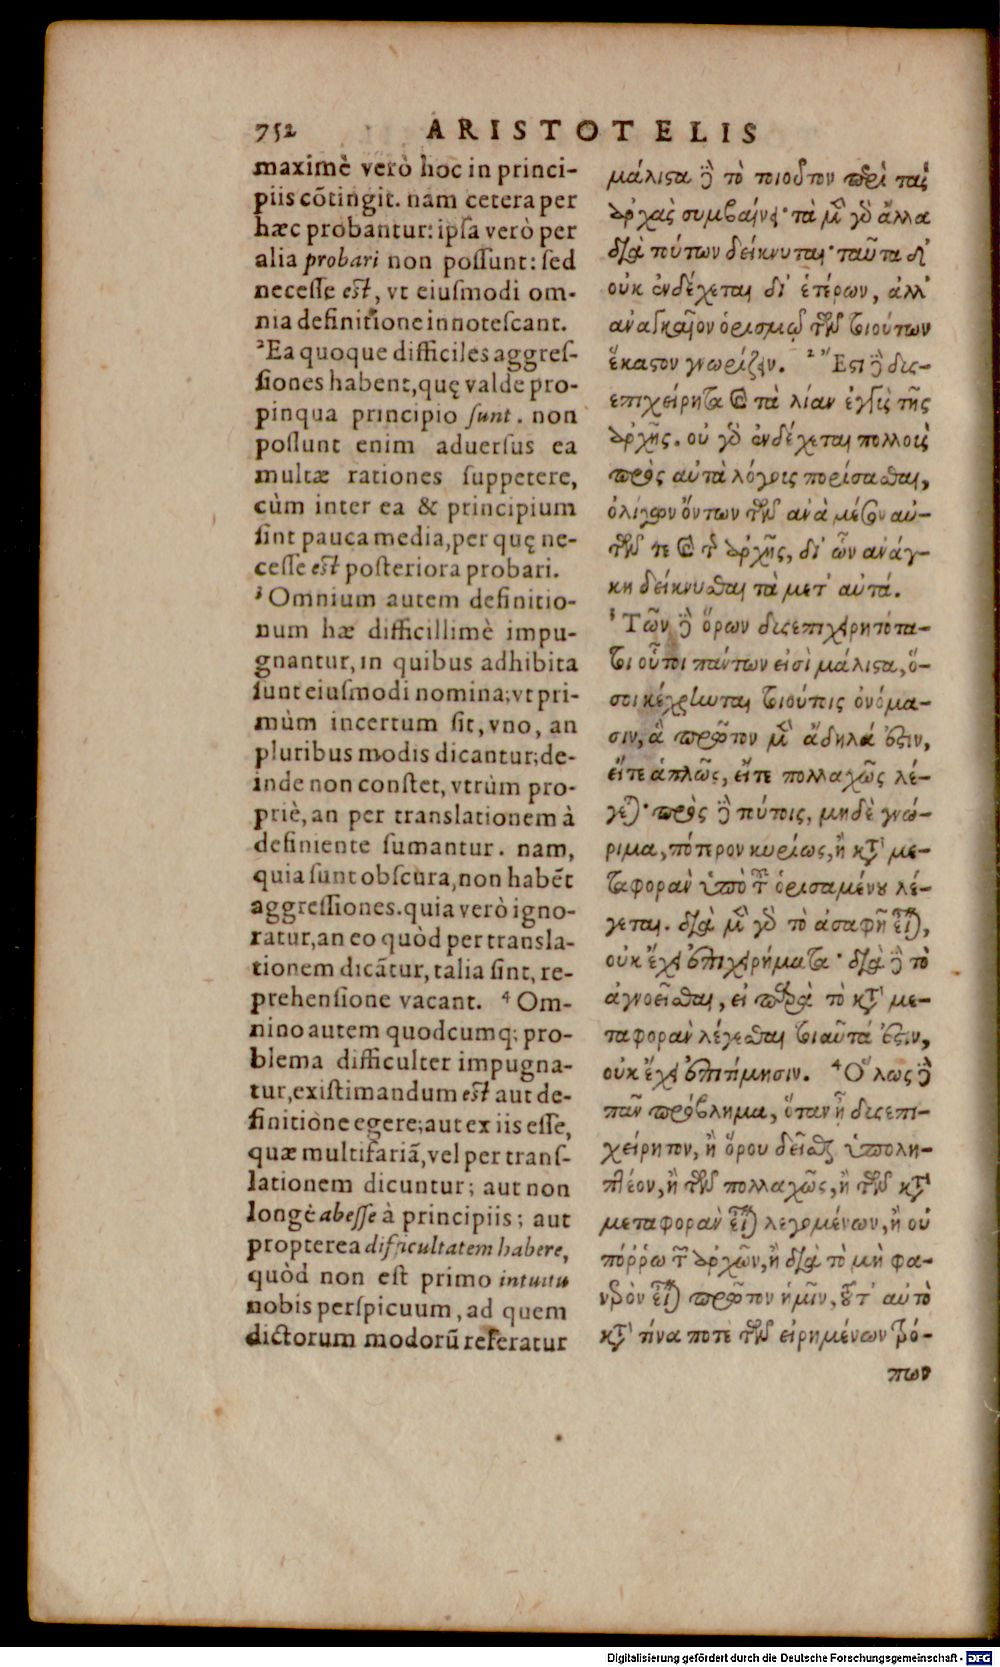 752 ARISTOTELIS
maximè verò hoc in princi-
piis cõtingit. nam cetera per
hæc probantur: ipſa verò per
alia probari non poſſunt: ſed
neceſſe eſt, vt eiuſmodi om-
nia definitione innoteſcant.
²Ea quoque difficiles aggreſ-
ſiones habent, quę valde pro-
pinqua principio ſunt. non
poſſunt enim aduerſus ea
multæ rationes ſuppetere,
cùm inter ea & principium
ſint pauca media, per quę ne-
ceſſe eſt poſteriora probari.
³Omnium autem definitio-
num hæ difficillimè impu-
gnantur, in quibus adhibita
ſunt eiuſmodi nomina; vt pri-
mùm incertum ſit, vno, an
pluribus modis dicantur; de-
inde non conſtet, vtrùm pro-
priè, an per translationem à
definiente ſumantur. nam,
quia ſunt obſcura, non habẽt
aggreſſiones. quia verò igno-
ratur, an eo quòd per transla-
tionem dicãtur, talia ſint, re-
prehenſione vacant. ⁴ Om-
nino autem quodcumq; pro-
blema difficulter impugna-
tur, exiſtimandum eſt aut de-
finitione egere; aut ex iis eſſe,
quæ multifariã, vel per tranſ-
lationem dicuntur; aut non
longè abeſſe à principiis; aut
propterea difficultatem habere,
quòd non eſt primo intuitu
nobis perſpicuum, ad quem
dictorum modorũ referatur
μάλιϛα ἢ τὸ τοιοῦτον περὶ τὰς
ἀρχὰς συμβαίνει· τὰ μὲν γὸ ἄλλα
διὰ τούτων δείκνυται· ταῦτα δ'
οὐκ ἐνδέχεται δι' ἑτέρων, ἀλλ'
ἀναγκαῖον ὁρισμῷ τῶν τοιούτων
ἕκαϛον γνωρίζειν. ² Ἔϛι δὲ δυς-
επιχείρητα καὶ τὰ λίαν ἐγγὺς τῆς
ἀρχῆς. οὐ γὸ ἐνδέχεται πολλοὺς
πρὸς αὐτὰ λόγους πορίσασθαι,
ὀλίγων ὄντων τῶν ἀνὰ μέσον αὐ-
τῶν τε καὶ τῆς ἀρχῆς, δι' ὧν ἀνάγ-
κη δείκνυσθαι τὰ μετ' αὐτά.
³ Τῶν δὲ ὅρων δυςεπιχειρητότα-
τοι οὗτοι πάντων εἰσὶ μάλιϛα, ὅ-
σοι κέχρηνται τοιούτοις ὀνόμα-
σιν, ἃ πρῶτον μὲν ἄδηλά ἐϛιν,
εἴτε ἁπλῶς, εἴτε πολλαχῶς λέ-
γεται· πρὸς δὲ τούτοις, μηδὲ γνώ-
ριμα, πότερον κυρίως, ἢ κατὰ με-
ταφορὰν ὑπὸ τοῦ ὁρισαμένου λέ-
γεται. διὰ μὲν γὸ τὸ ἀσαφῆ εἶναι,
οὐκ ἔχει ἐπιχειρήματα· διὰ δὲ τὸ
ἀγνοεῖσθαι, εἰ παρὰ τὸ κατὰ με-
ταφορὰν λέγεσθαι τοιαῦτά ἐϛιν,
οὐκ ἔχει ἐπιτίμησιν. ⁴ Ὅλως δὲ
πᾶν πρόβλημα, ὅταν ᾖ δυςεπι-
χείρητον, ἢ ὅρου δεῖσθαι ὑπολη-
πτέον, ἢ τῶν πολλαχῶς, ἢ τῶν κατὰ
μεταφορὰν εἶναι λεγομένων, ἢ οὐ
πόῤῥω τῶν ἀρχῶν, ἢ διὰ τὸ μὴ φα-
νερὸν εἶναι πρῶτον ἡμῖν, τοῦτ' αὐτὸ
κατὰ τίνα ποτὲ τῶν εἰρημένων τρό-
πων
Digitalisierung gefördert durch die Deutsche Forschungsgemeinschaft - DFG